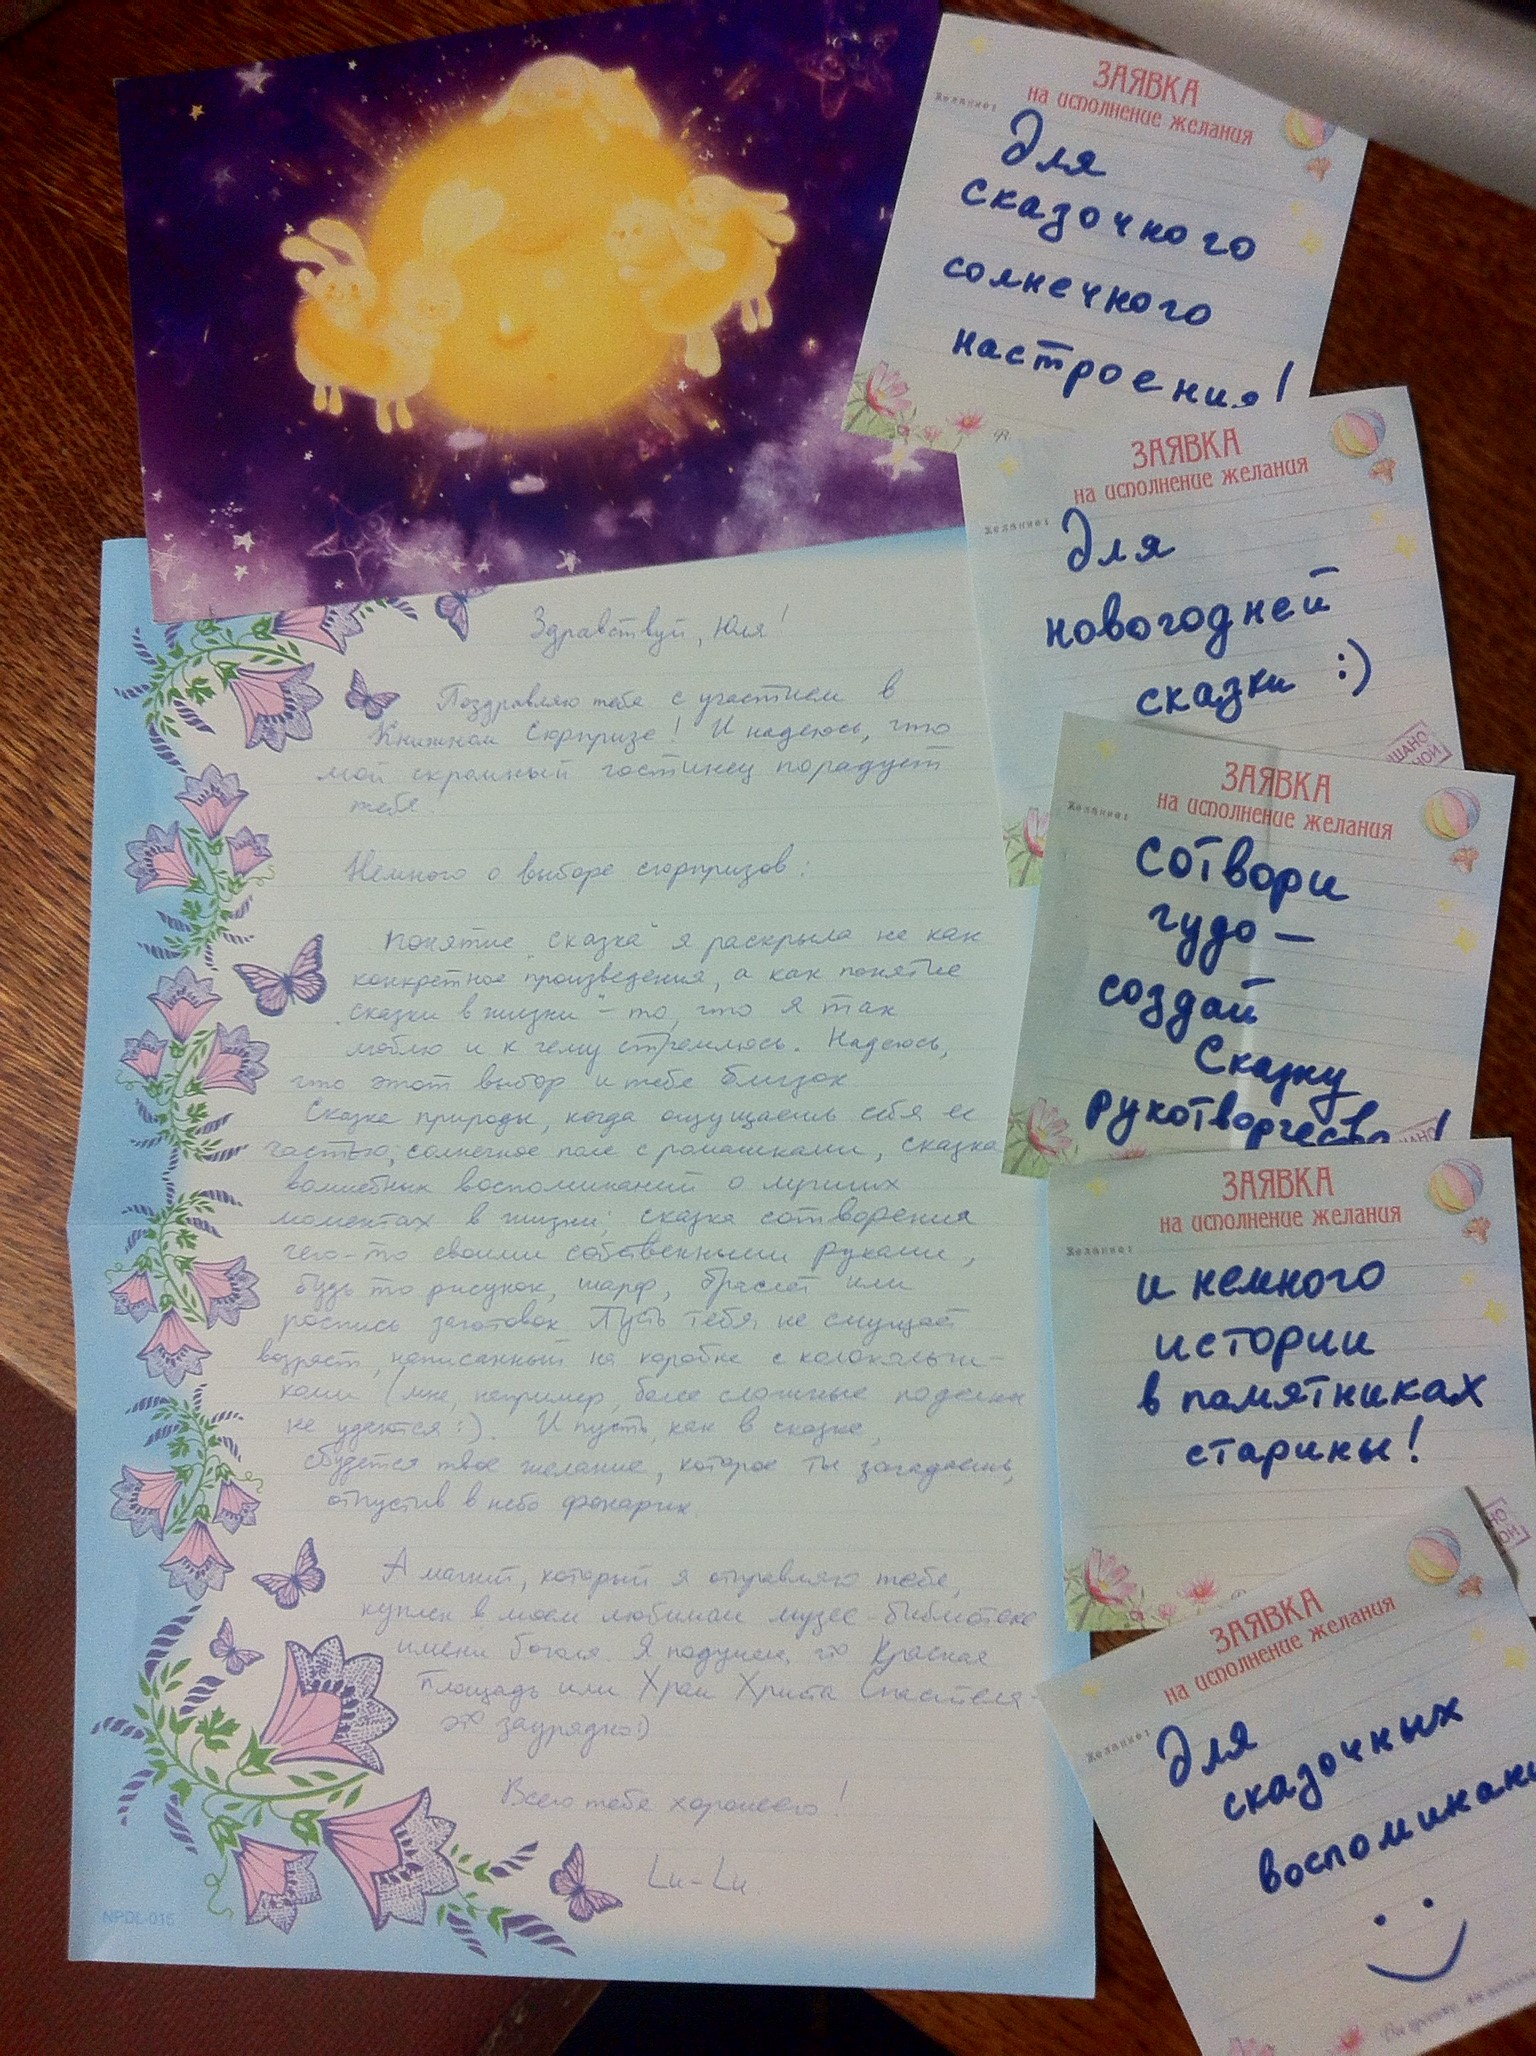 Здравствуй, Юля!
Поздравляю тебя с участием в
Книжном Сюрпризе! И надеюсь, что
мой скромный гостинец порадует
тебя!
Немного о выборе сюрпризов:
Понятие "сказка" я раскрыла не как
конкретное произведения, а как понятие
"сказки в жизни" - то, что я так
люблю и к чему стремлюсь. Надеюсь,
что этот выбор и тебе близок
Сказка природы, когда ощущаешь себя её
гостью; солнечное поле с ромашками, сказка
волшебных воспоминаний о лучших
моментах в жизни; сказка сотворения
чего-то своими собственными руками,
будь то рисунок, шарф, браслет или
роспись заготовок Пусть тебя не смущает
возраст, написанный на коробке с колокольчи-
ками (мне, например, более сложные поделки
не удаются :). И пусть, как в сказке,
сбудется твое желание, которое ты загадаешь,
отпустив в небо фонарик
А магнит, который я отправляю тебе,
куплен в моем любимом музее-библиотеке
имени Гоголя Я подумала, что Красная
Площадь или Храм Христа Спасителя -
это заурядно :)
Всего тебе хорошего!
Lu-Lu
NPDL-015
ЗАЯВКА
на исполнение желания
Желание:
Для
сказочного
солнечного
настроения!
ЗАЯВКА
на исполнение желания
Желание:
Для
новогодней
сказки :)
ЗАЯВКА
на исполнение желания
Желание:
Сотвори
чудо -
создай
Сказку
рукотворчества!
ЗАЯВКА
на исполнение желания
Желание:
и немного
истории
в памятниках
старины!
ЗАЯВКА
на исполнение желания
Желание:
Для
сказочных